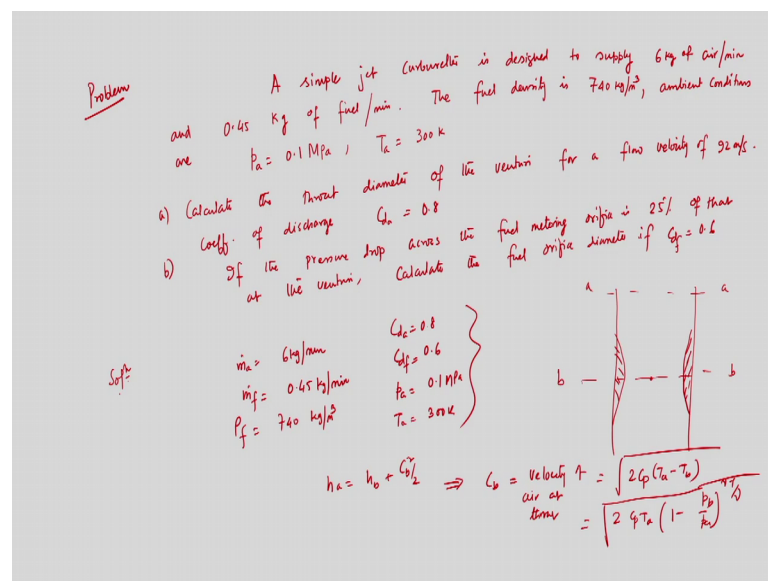 Problem
A simple jet carburettor is designed to supply 6 kg of air/min
and 0.45 kg of fuel/min. The fuel density is 740 kg/m³, ambient conditions
are pa = 0.1 MPa, Ta = 300 K
a) Calculate the throat diameter of the venturi for a flow velocity of 92 m/s.
coeff. of discharge Cda = 0.8
b) If the pressure drop across the fuel metering orifice is 25% of that
at the venturi, Calculate the fuel orifice diameter if Cdf = 0.6
Solⁿ:
ṁa = 6 kg/min Cda = 0.8
ṁf = 0.45 kg/min Cdf = 0.6
ρf = 740 kg/m³ pa = 0.1 MPa
Ta = 300 K
a a
b b
ha = hb + Cb²/2 ⇒ Cb = velocity of air at throat = √2Cp(Ta - Tb)
= √2CpTa(1 - pb/pa)